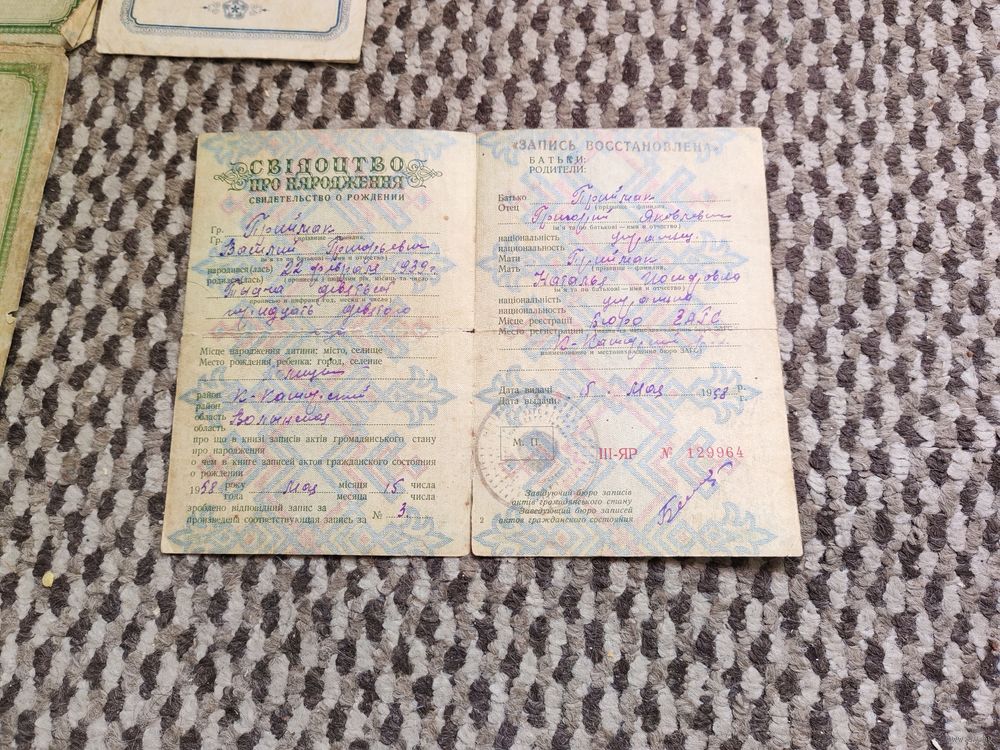 СВІДОЦТВО
ПРО НАРОДЖЕННЯ
СВИДЕТЕЛЬСТВО О РОЖДЕНИИ
Гр. Приймак
Гр. (прізвище — фамилия)
Василий Григорьевич
(ім'я та по батькові — имя и отчество)
народився(лась) 22 февраля 1939 г.
родился(лась) (прописом і цифрами рік, місяць та число
Тысяча девятьсот
прописью и цифрами год, месяц и число)
тридцать девятого
Місце народження дитини: місто, селище
Место рождения ребенка: город, селение
район К-Каширский
район
область Волынская
область
про що в книзі записів актів громадянського стану
про народження
о чем в книге записей актов гражданского состояния
о рождении
1958 року мая місяця 15 числа
года месяца числа
зроблено відповідний запис за
произведена соответствующая запись за № 3
«ЗАПИСЬ ВОССТАНОВЛЕНА»
БАТЬКИ:
РОДИТЕЛИ:
Батько Приймак
Отец (прізвище — фамилия)
Григорий Яковлевич
(ім'я та по батькові — имя и отчество)
національність украинец
национальность
Мати Приймак
Мать (прізвище — фамилия)
Наталья
(ім'я та по батькові — имя и отчество)
національність украинка
национальность
Місце реєстрації бюро ЗАГС
Место регистрации (назва та місцезнаходження бюро ЗАГС
К-Каширский
наименование и местонахождение бюро ЗАГС)
Дата видачі мая 1958 р.
Дата выдачи: г.
М. П.
III-ЯР № 129964
Завідуючий бюро записів
актів громадянського стану
Заведующий бюро записей
актов гражданского состояния
2